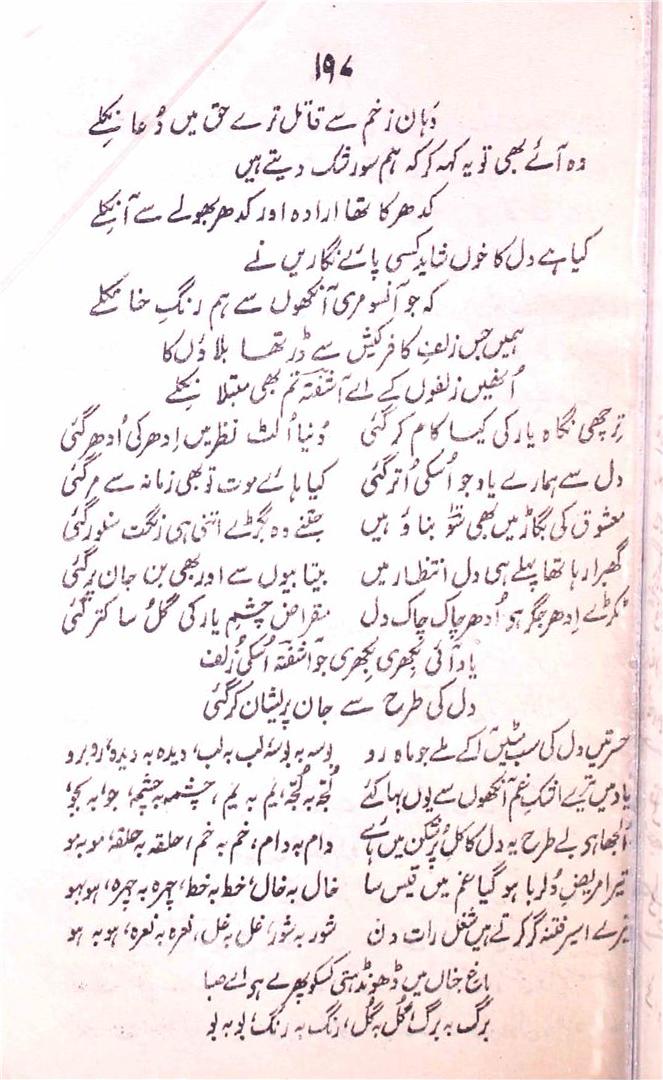 ۱۹۷
دہانِ زخم سے قاتل ترے حق میں دُعا نکلے
وہ آئے بھی تو یہ کہہ کر کہ ہم سو رشک دیتے ہیں
کدھر کا تھا ارادہ اور کدھر بھولے سے آ نکلے
کیا ہے دل کا خوں شاید کسی پائے نگاریں نے
کہ جو آنسو مری آنکھوں سے ہم رنگِ حنا نکلے
ہمیں جس زلفِ کافر کیش سے ڈر تھا بلاؤں کا
اُنھیں زلفوں کے اے آشفتہؔ تم بھی مبتلا نکلے
ترچھی نگاہ یار کی کیسا کام کر گئی دُنیا اُلٹ نظر میں اِدھر کی اُدھر گئی
دل سے ہمارے یاد جو اُسکی اُتر گئی کیا ہائے موت تو بھی زمانہ سے مر گئی
معشوق کی بگاڑ میں بھی سَو بناؤ ہیں جتنے وہ بگڑے اتنی ہی رنگت سنور گئی
گھبرا رہا تھا پہلے ہی دل انتظار میں بیتابیوں سے اور بھی بن جان پر گئی
ٹکڑے اِدھر جگر ہی اُدھر چاک چاک دل مقراضِ چشم یار کی گُل سا کتر گئی
یاد آئی بکھری بکھری جو آشفتہؔ اُسکی زُلف
دل کی طرح سے جان پریشان کر گئی
حسرتیں دل کی سب مٹیں آ کے ملے جو ماہ رو بوسہ بہ بوسہ، لب بہ لب، دیدہ بہ دیدہ، روبرو
یاد میں تیرے اشکِ غم آنکھوں سے یوں بہا کئے لُجّہ بہ لُجّہ، یم بہ یم، چشمہ بہ چشمہ، جو بہ جو
اُلجھا ہی بے طرح یہ دل کاکلِ پُرشکن میں ہائے دام بہ دام، خم بہ خم، حلقہ بہ حلقہ، مو بہ مو
تیرا مریض دلربا ہو گیا غم میں قیس سا خال بہ خال، خط بہ خط، چہرہ بہ چہرہ، ہو بہو
تیرے اسیر فتنہ گر کرتے ہیں شغل رات دن شور بہ شور، غل بہ غل، نعرہ بہ نعرہ، ہو بہ ہو
باغِ جناں میں ڈھونڈھتی کسکو پھرے ہو اے صبا
برگ بہ برگ، گُل بہ گُل، رنگ بہ رنگ، بو بہ بو